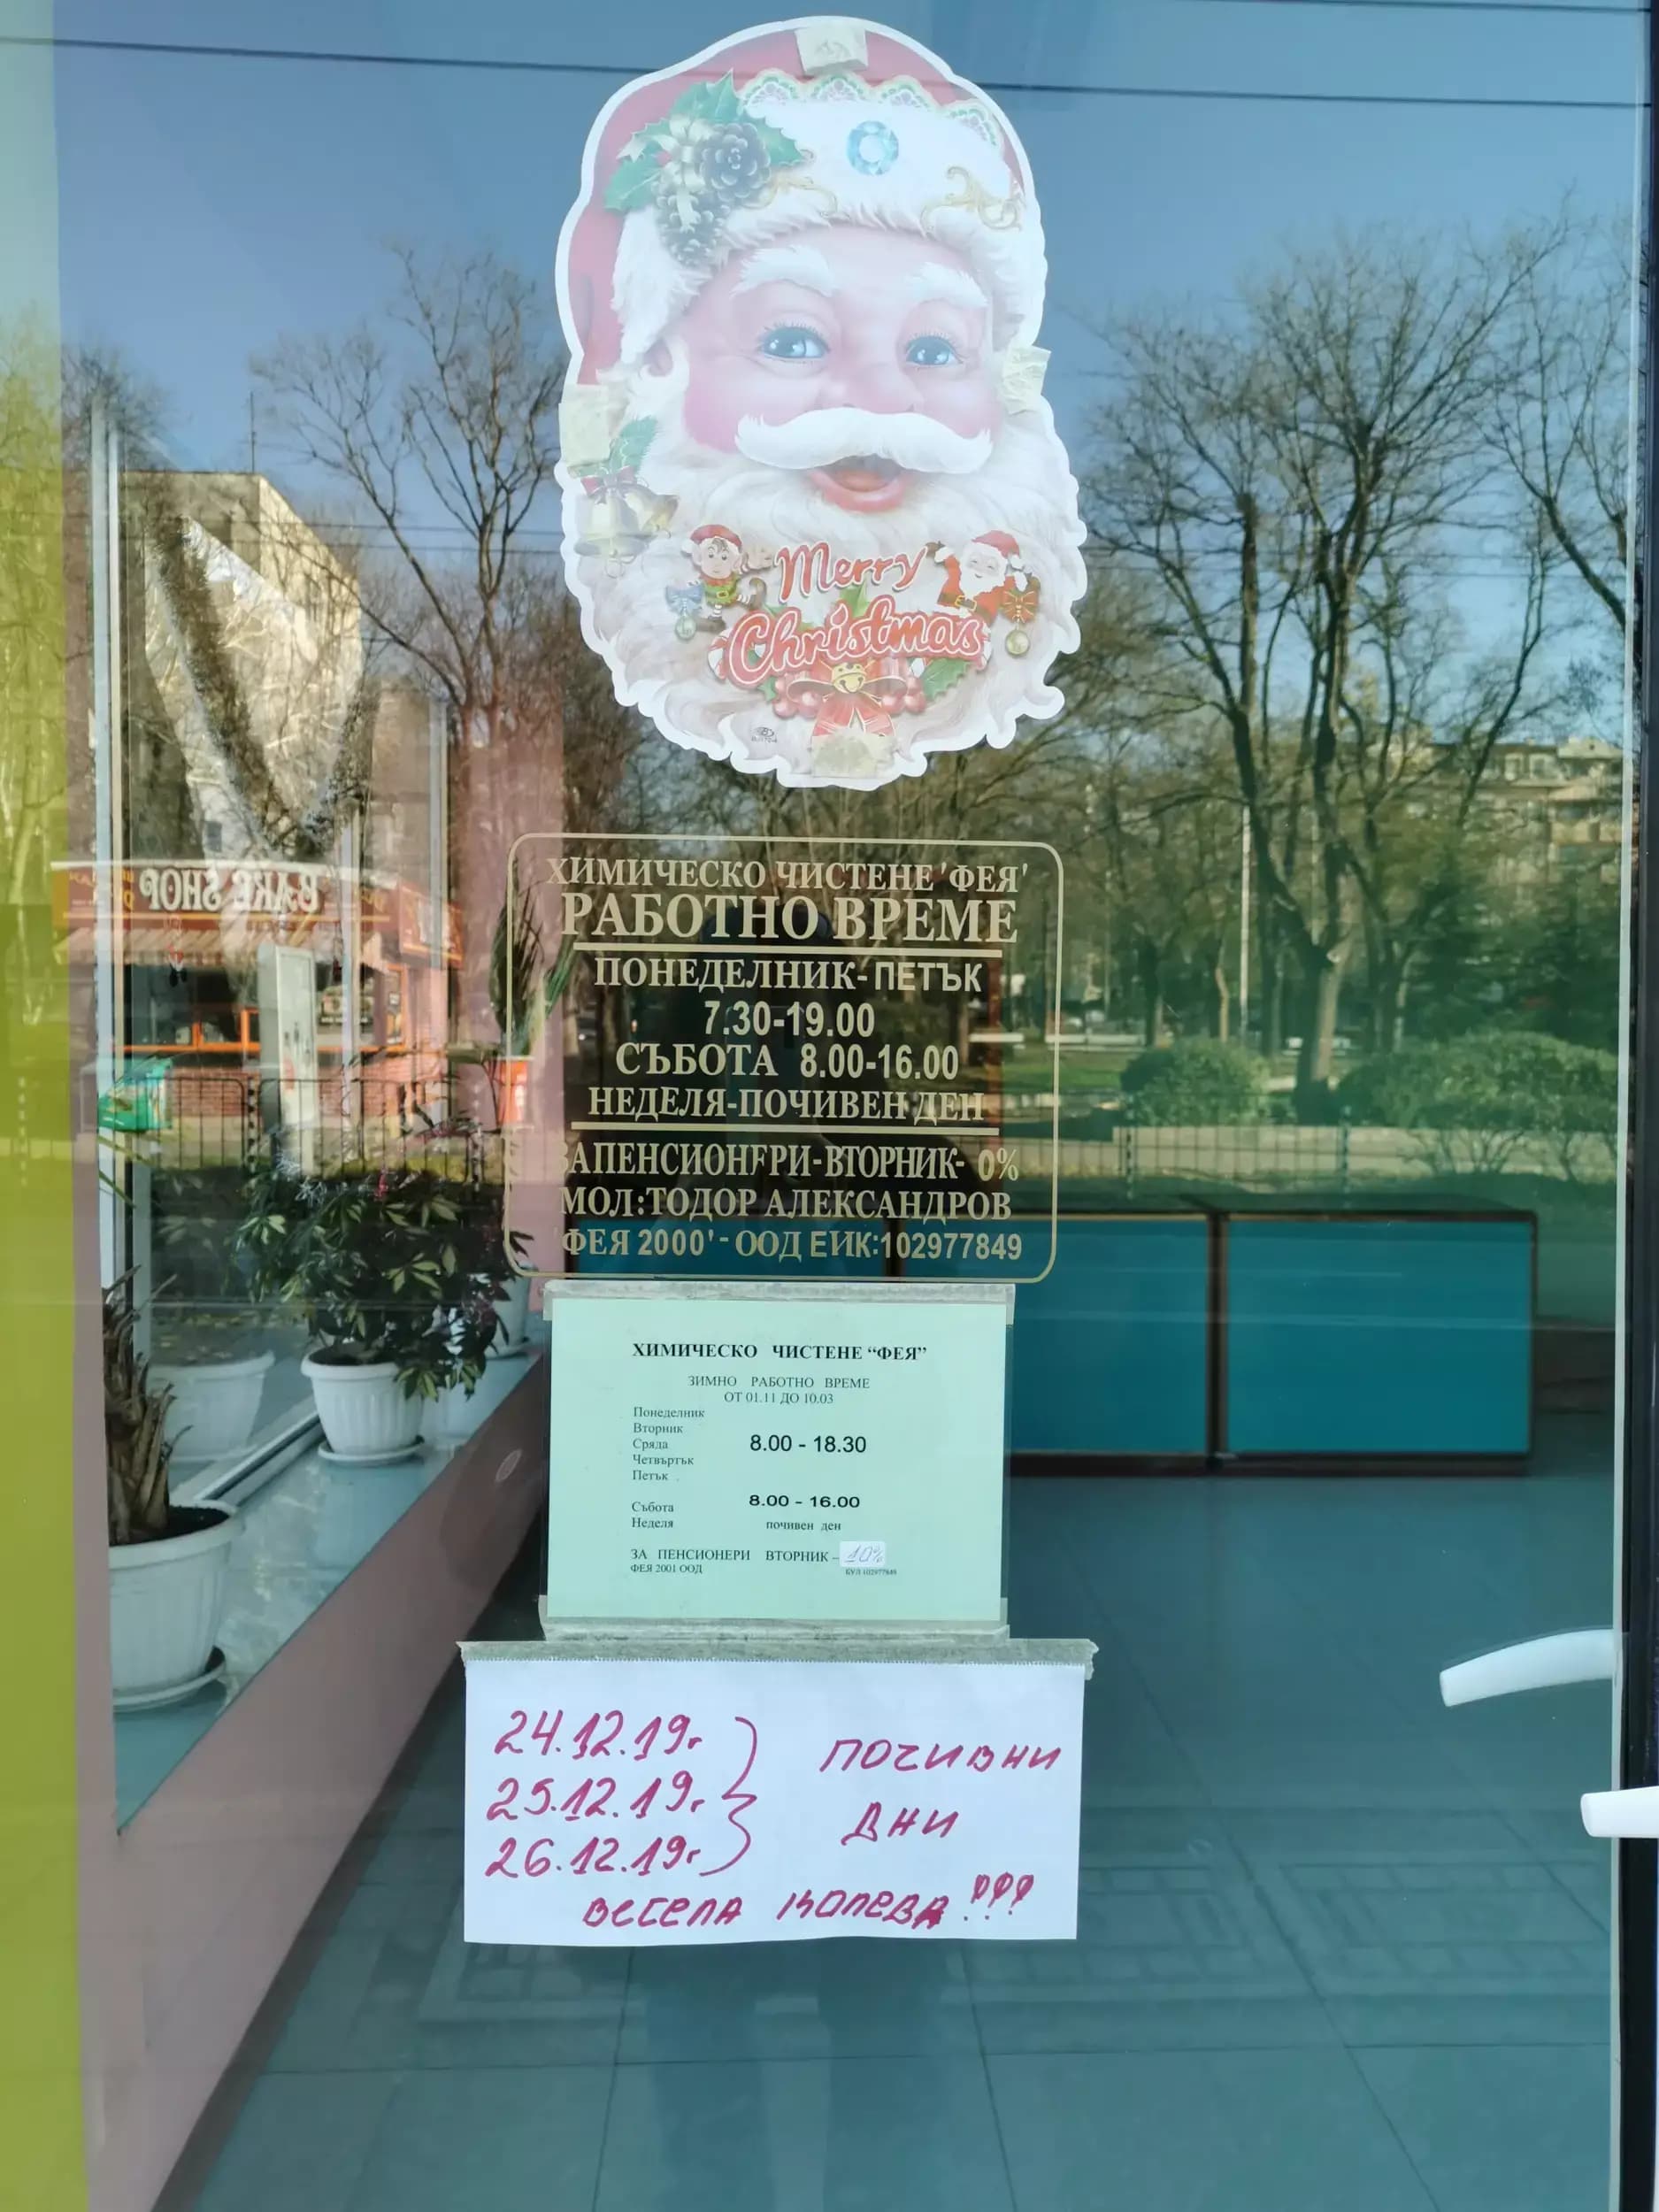 Merry
Christmas
BAKE SHOP
ХИМИЧЕСКО ЧИСТЕНЕ 'ФЕЯ'
РАБОТНО ВРЕМЕ
ПОНЕДЕЛНИК-ПЕТЪК
7.30-19.00
СЪБОТА 8.00-16.00
НЕДЕЛЯ-ПОЧИВЕН ДЕН
ЗА ПЕНСИОНЕРИ-ВТОРНИК- 0%
МОЛ:ТОДОР АЛЕКСАНДРОВ
'ФЕЯ 2000'-ООД ЕИК:102977849
ХИМИЧЕСКО ЧИСТЕНЕ “ФЕЯ”
ЗИМНО РАБОТНО ВРЕМЕ
ОТ 01.11 ДО 10.03
Понеделник
Вторник
Сряда 8.00 - 18.30
Четвъртък
Петък
Събота 8.00 - 16.00
Неделя почивен ден
ЗА ПЕНСИОНЕРИ ВТОРНИК – 10%
ФЕЯ 2001 ООД БУЛ 102977849
24.12.19г
25.12.19г
26.12.19г
почивни
дни
весела колева!!!